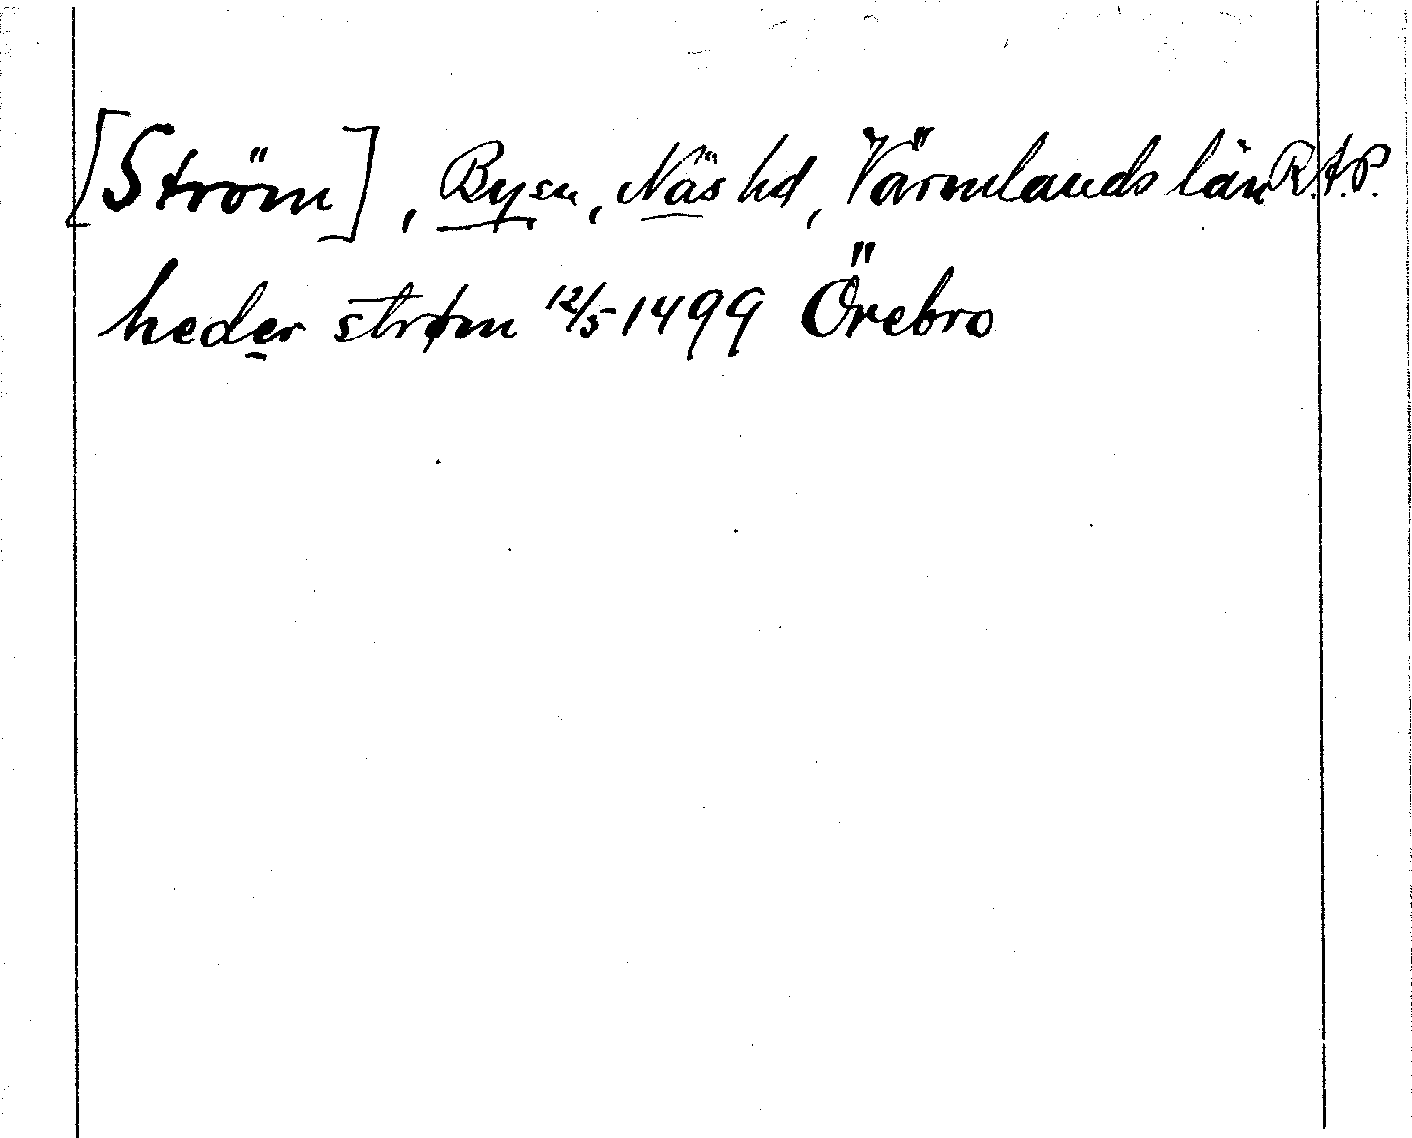 [Ström], By sn, Näs hd, Värmlands län R.A.P.
heder strøm 12/5 1499 Örebro